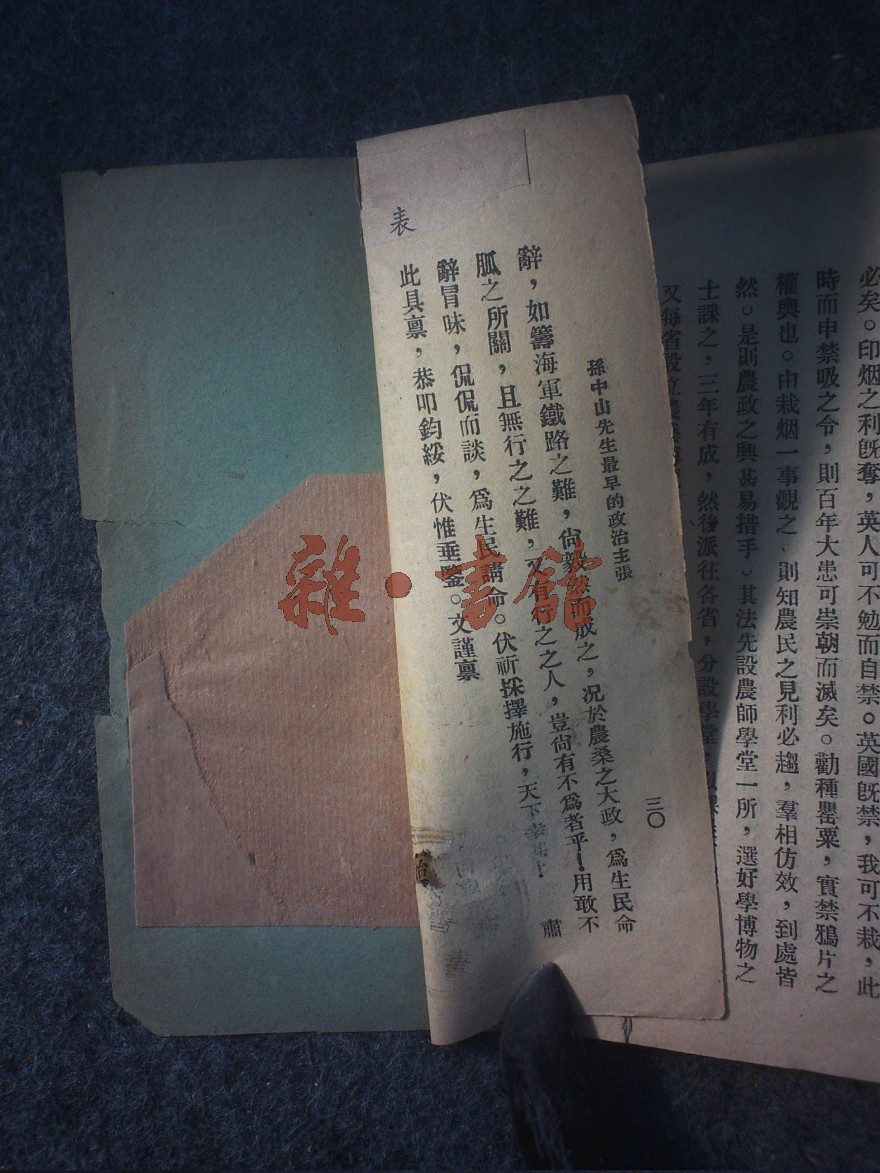 必矣。印烟之利旣奪,英人可不勉而自禁。英國旣禁,我可不栽,此
時而申禁吸之令,則百年大患可崇朝而滅矣。勸種罌粟,實禁鴉片之
權興也。由栽烟一事觀之、則知農民之見利必趨,羣相仿效,到處皆
然。是則農政之興甚易措手。其法先設農師學堂一所,選好學博物之
士課之,三年有成,然後派往各省,分設學堂,
又每省設立農
孫中山先生最早的政治主張
三〇
辭,如籌海軍鐵路之難,尙毅然而成之,況於農桑之大政,爲生民命
脈之所關,且無行之之難,又有行之之人,豈尙有不爲者乎!用敢不
辭冒味,侃侃而談,爲生民請命。伏祈採擇施行,天下幸甚!肅
此具稟,恭叩鈞綏,伏惟垂鑒。文謹稟
表
雜·書館